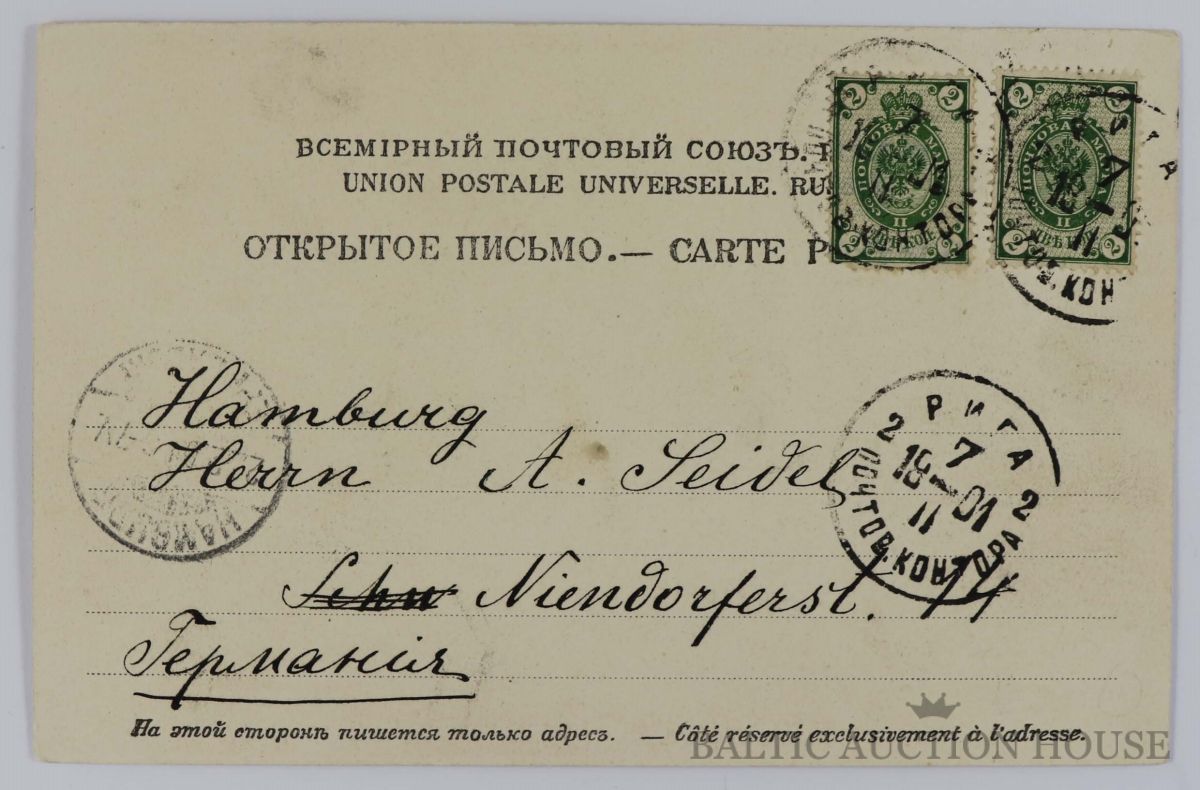 ВСЕМІРНЫЙ ПОЧТОВЫЙ СОЮЗЪ.
UNION POSTALE UNIVERSELLE. RU
ОТКРЫТОЕ ПИСЬМО.— CARTE P
2 2
ПОЧТОВАЯ МАРКА
II
2 2
2 2
ПОЧТОВАЯ МАРКА
II
2 ДВѢ 2
Hamburg
Herrn A. Seidel
Schw Niendorferst. 14
Германія
РИГА
2 7 2
18 — 01
11
ПОЧТОВ. КОНТОРА
HAMBURG
На этой сторонѣ пишется только адресъ. — Côté réservé exclusivement à l'adresse.
BALTIC AUCTION HOUSE